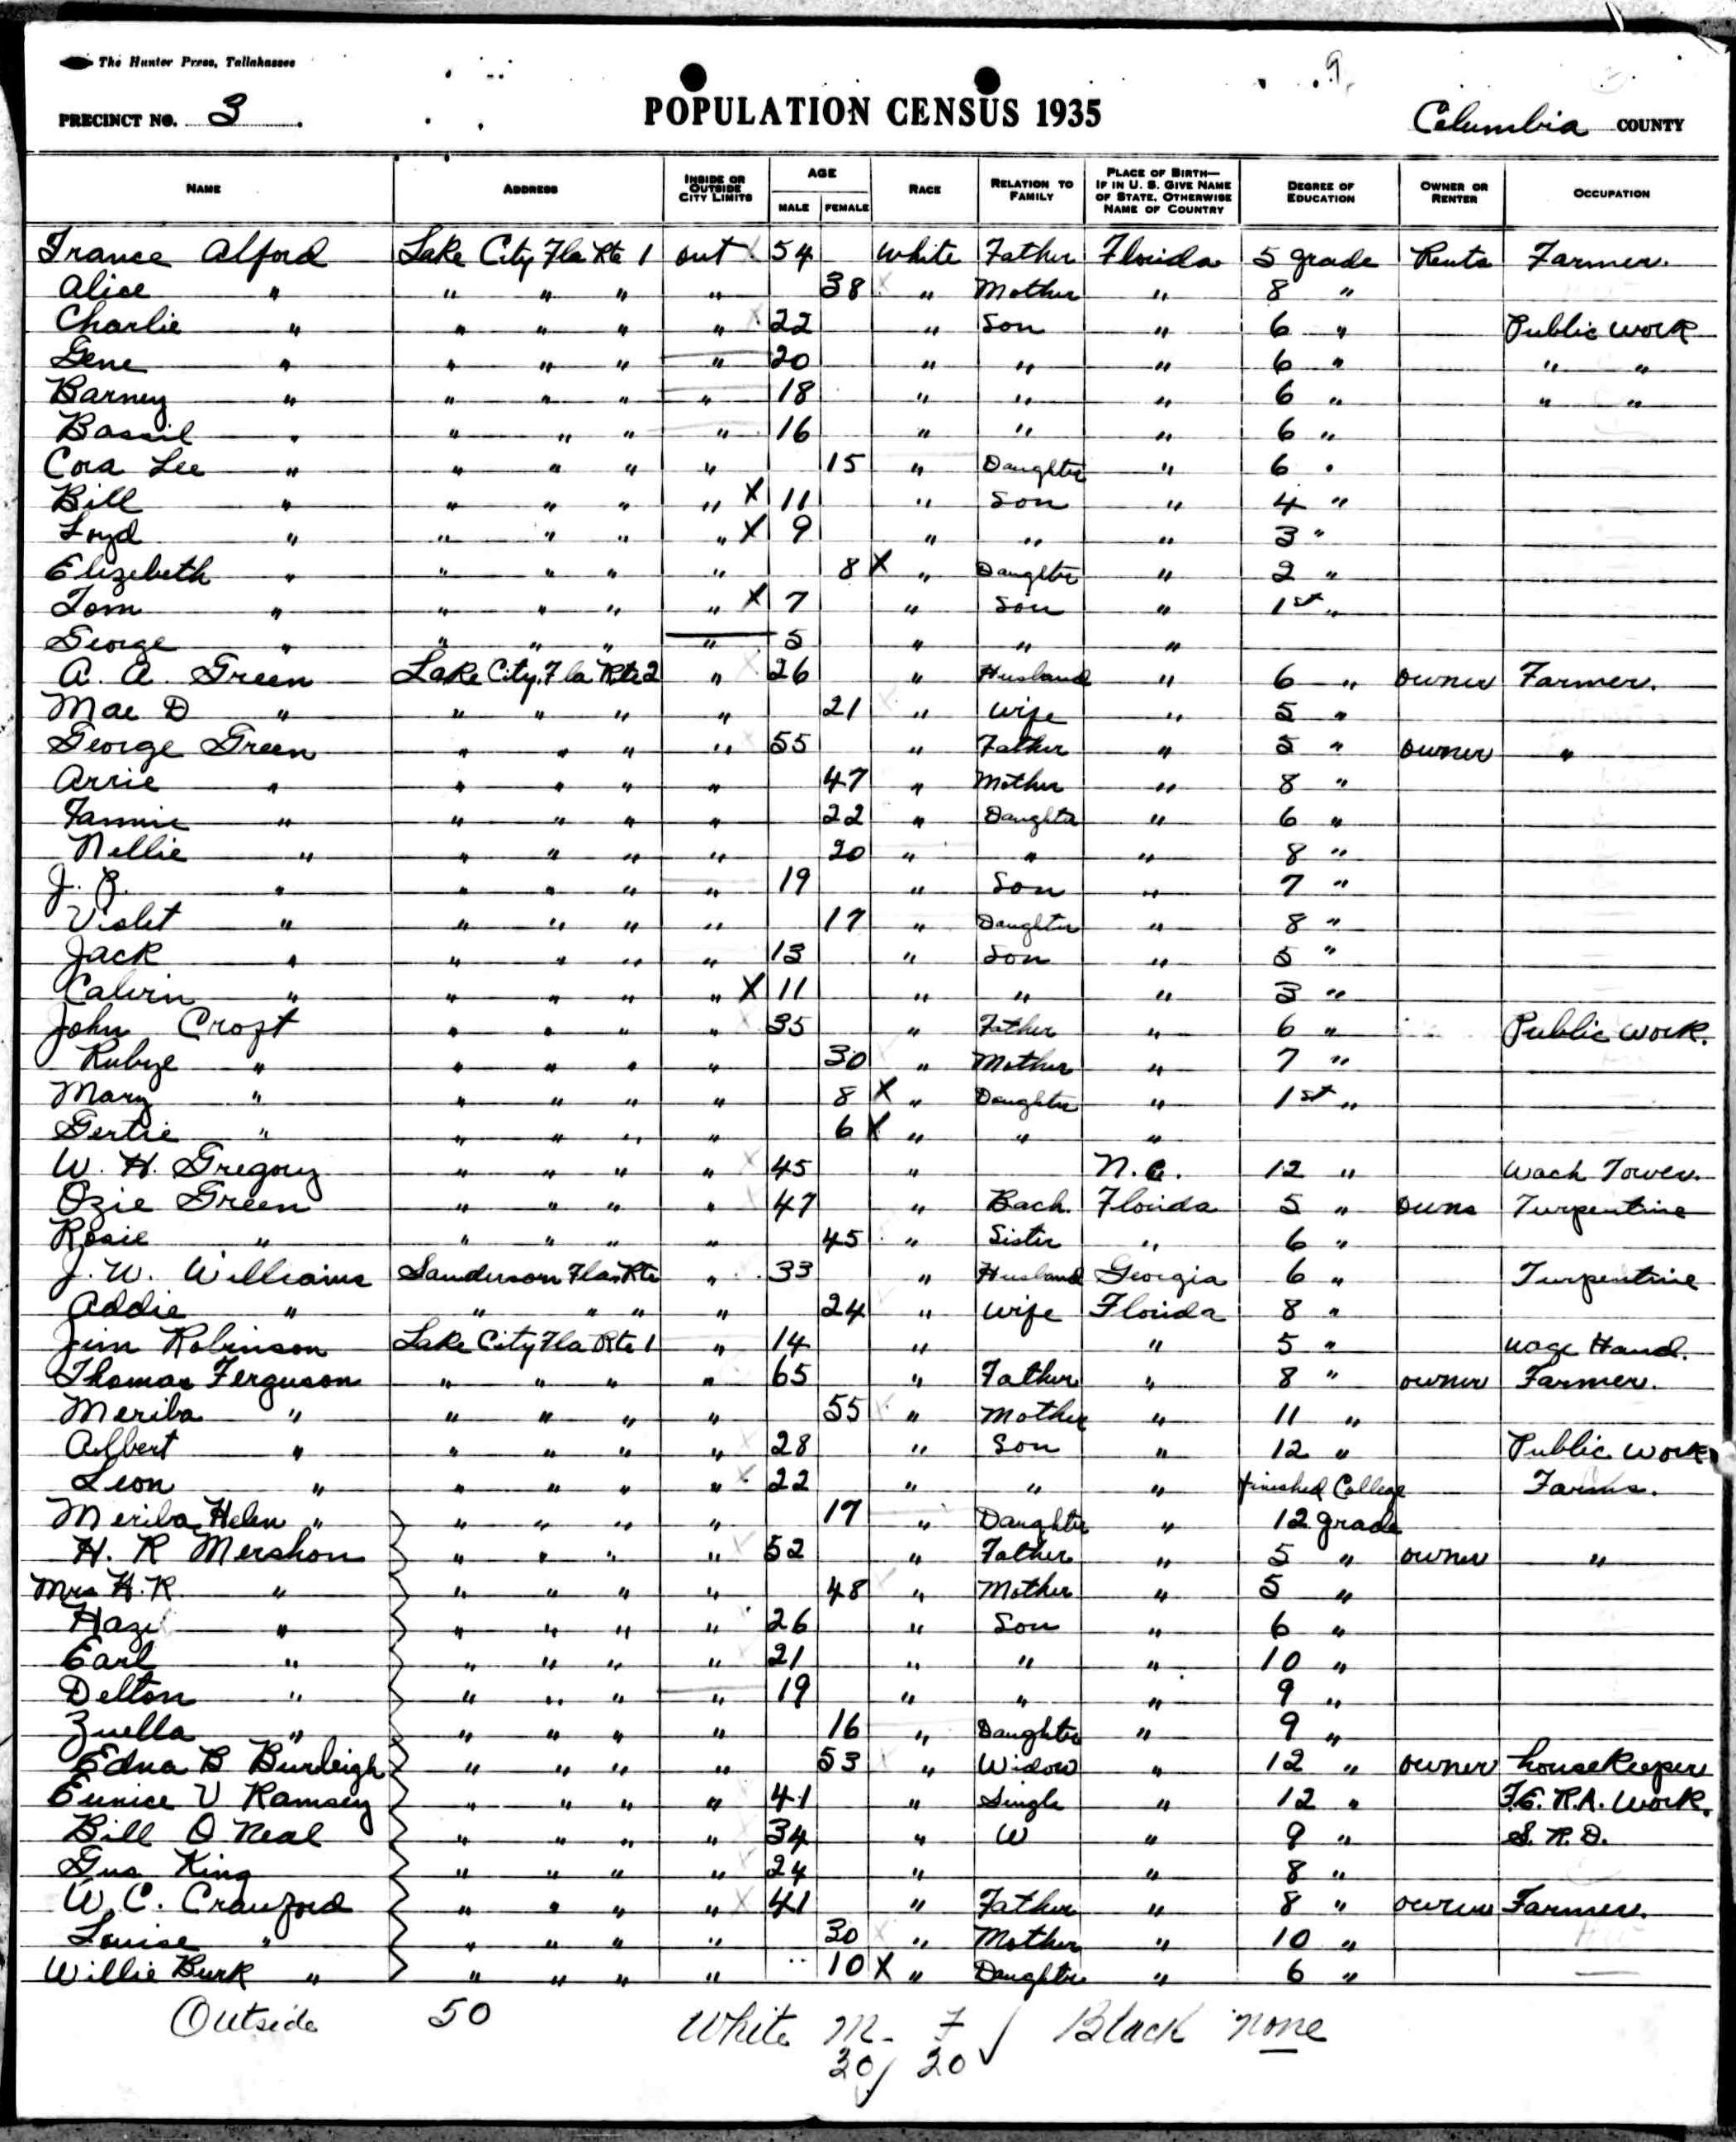 The Hunter Press, Tallahassee
9
PRECINCT NO. 3 POPULATION CENSUS 1935 Columbia COUNTY
NAME ADDRESS INSIDE OR OUTSIDE CITY LIMITS AGE MALE FEMALE RACE RELATION TO FAMILY PLACE OF BIRTH— IF IN U. S. GIVE NAME OF STATE, OTHERWISE NAME OF COUNTRY DEGREE OF EDUCATION OWNER OR RENTER OCCUPATION
France Alford Lake City Fla Rte 1 out X 54 White Father Florida 5 grade Rents Farmer.
Alice " " " " " 38 X " Mother " 8 "
Charlie " " " " " X 22 " Son " 6 " Public Work
Gene " " " " " 20 " " " 6 " " "
Barney " " " " " 18 " " " 6 " " "
Bassil " " " " " 16 " " " 6 "
Cora Lee " " " " " 15 " Daughter " 6 "
Bill " " " " " X 11 " Son " 4 "
Loyd " " " " " X 9 " " " 3 "
Elizebeth " " " " " 8 X " Daughter " 2 "
Tom " " " " " X 7 " Son " 1st "
George " " " " " 5 " " "
A. A. Green Lake City, Fla Rte 2 " 26 " Husband " 6 " owner Farmer.
Mae D " " " " " 21 " Wife " 5 "
George Green " " " " 55 " Father " 5 " owner "
Arrie " " " " " 47 " Mother " 8 "
Fannie " " " " " 22 " Daughter " 6 "
Nellie " " " " " 20 " " " 8 "
J. " " " " " 19 " Son " 7 "
Violet " " " " " 17 " Daughter " 8 "
Jack " " " " " 13 " Son " 5 "
Calvin " " " " " X 11 " " " 3 "
John Croft " " " " 35 " Father " 6 " Public Work.
Rubye " " " " " 30 " Mother " 7 "
Mary " " " " " 8 X " Daughter " 1st "
Gertie " " " " " 6 X " " "
W. H. Gregory " " " " 45 " N. C. 12 " Wach Tower.
Ozie Green " " " " 47 " Bach. Florida 5 " Owns Turpentine
Rosie " " " " " 45 " Sister " 6 "
J. W. Williams Sanderson Fla Rte " 33 " Husband Georgia 6 " Turpentine
Addie " " " " " 24 " Wife Florida 8 "
Jim Robinson Lake City Fla Rte 1 " 14 " " 5 " wage Hand.
Thomas Ferguson " " " " 65 " Father " 8 " owner Farmer.
Meriba " " " " " 55 " Mother " 11 "
Albert " " " " " 28 " Son " 12 " Public Work
Leon " " " " " X 22 " " " finished College Farms.
Meriba Helen " " " " " 17 " Daughter " 12 grade
H. R Mershon " " " " 52 " Father " 5 " owner "
Mrs H. R. " " " " " 48 " Mother " 5 "
" " " " " 26 " Son " 6 "
Earl " " " " " 21 " " " 10 "
Delton " " " " " 19 " " " 9 "
Zuella " " " " " 16 " Daughter " 9 "
Edna B Burleigh " " " " 53 " Widow " 12 " owner housekeeper
Eunice V Ramsey " " " " 41 " Single " 12 " F.E.R.A. Work.
Bill O Neal " " " " 34 " W " 9 " S. R. D.
Gus King " " " " 24 " " 8 "
W. C. Crawford " " " " X 41 " Father " 8 " owner Farmer.
Louise " " " " " 30 " Mother " 10 "
Willie Burk " " " " " 10 X " Daughter " 6 "
Outside 50 White M. F Black none
30 20